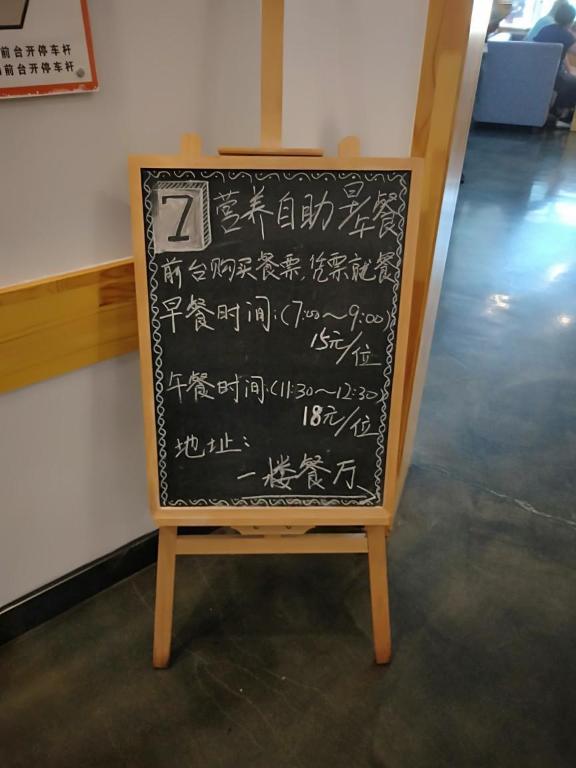 前台开停车杆
前台开停车杆
7 营养自助早/午餐
前台购买餐票,凭票就餐
早餐时间:(7:00~9:00)
15元/位
午餐时间:(11:30~12:30)
18元/位
地址:
一楼餐厅